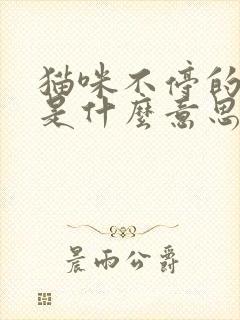 猫咪不停的
是什麼意思
晨雨公爵